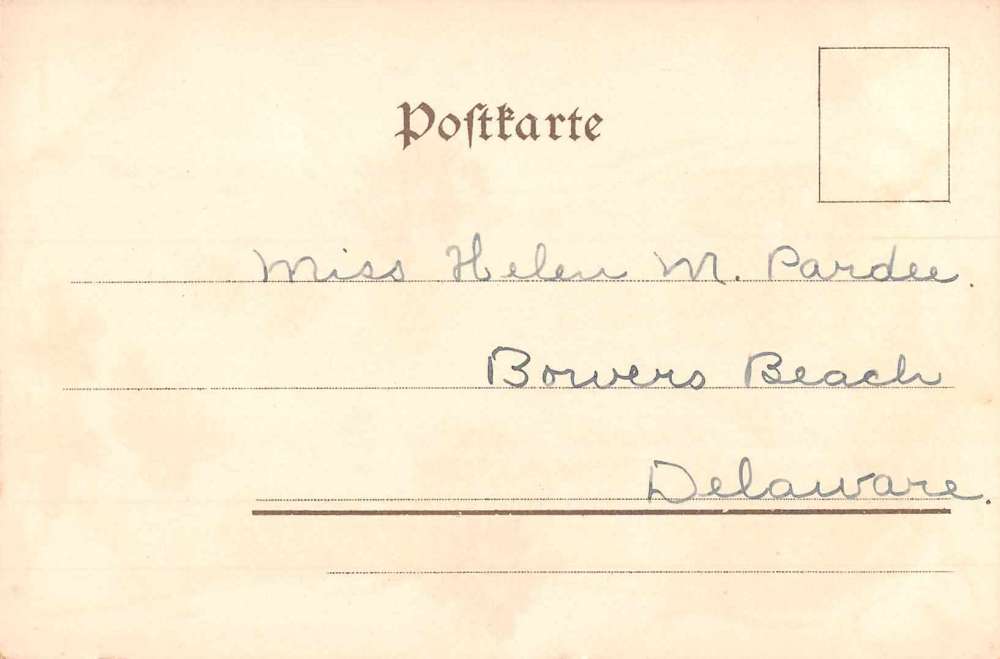 Poſtkarte
Miss Helen M. Pardee.
Bowers Beach
Delaware.